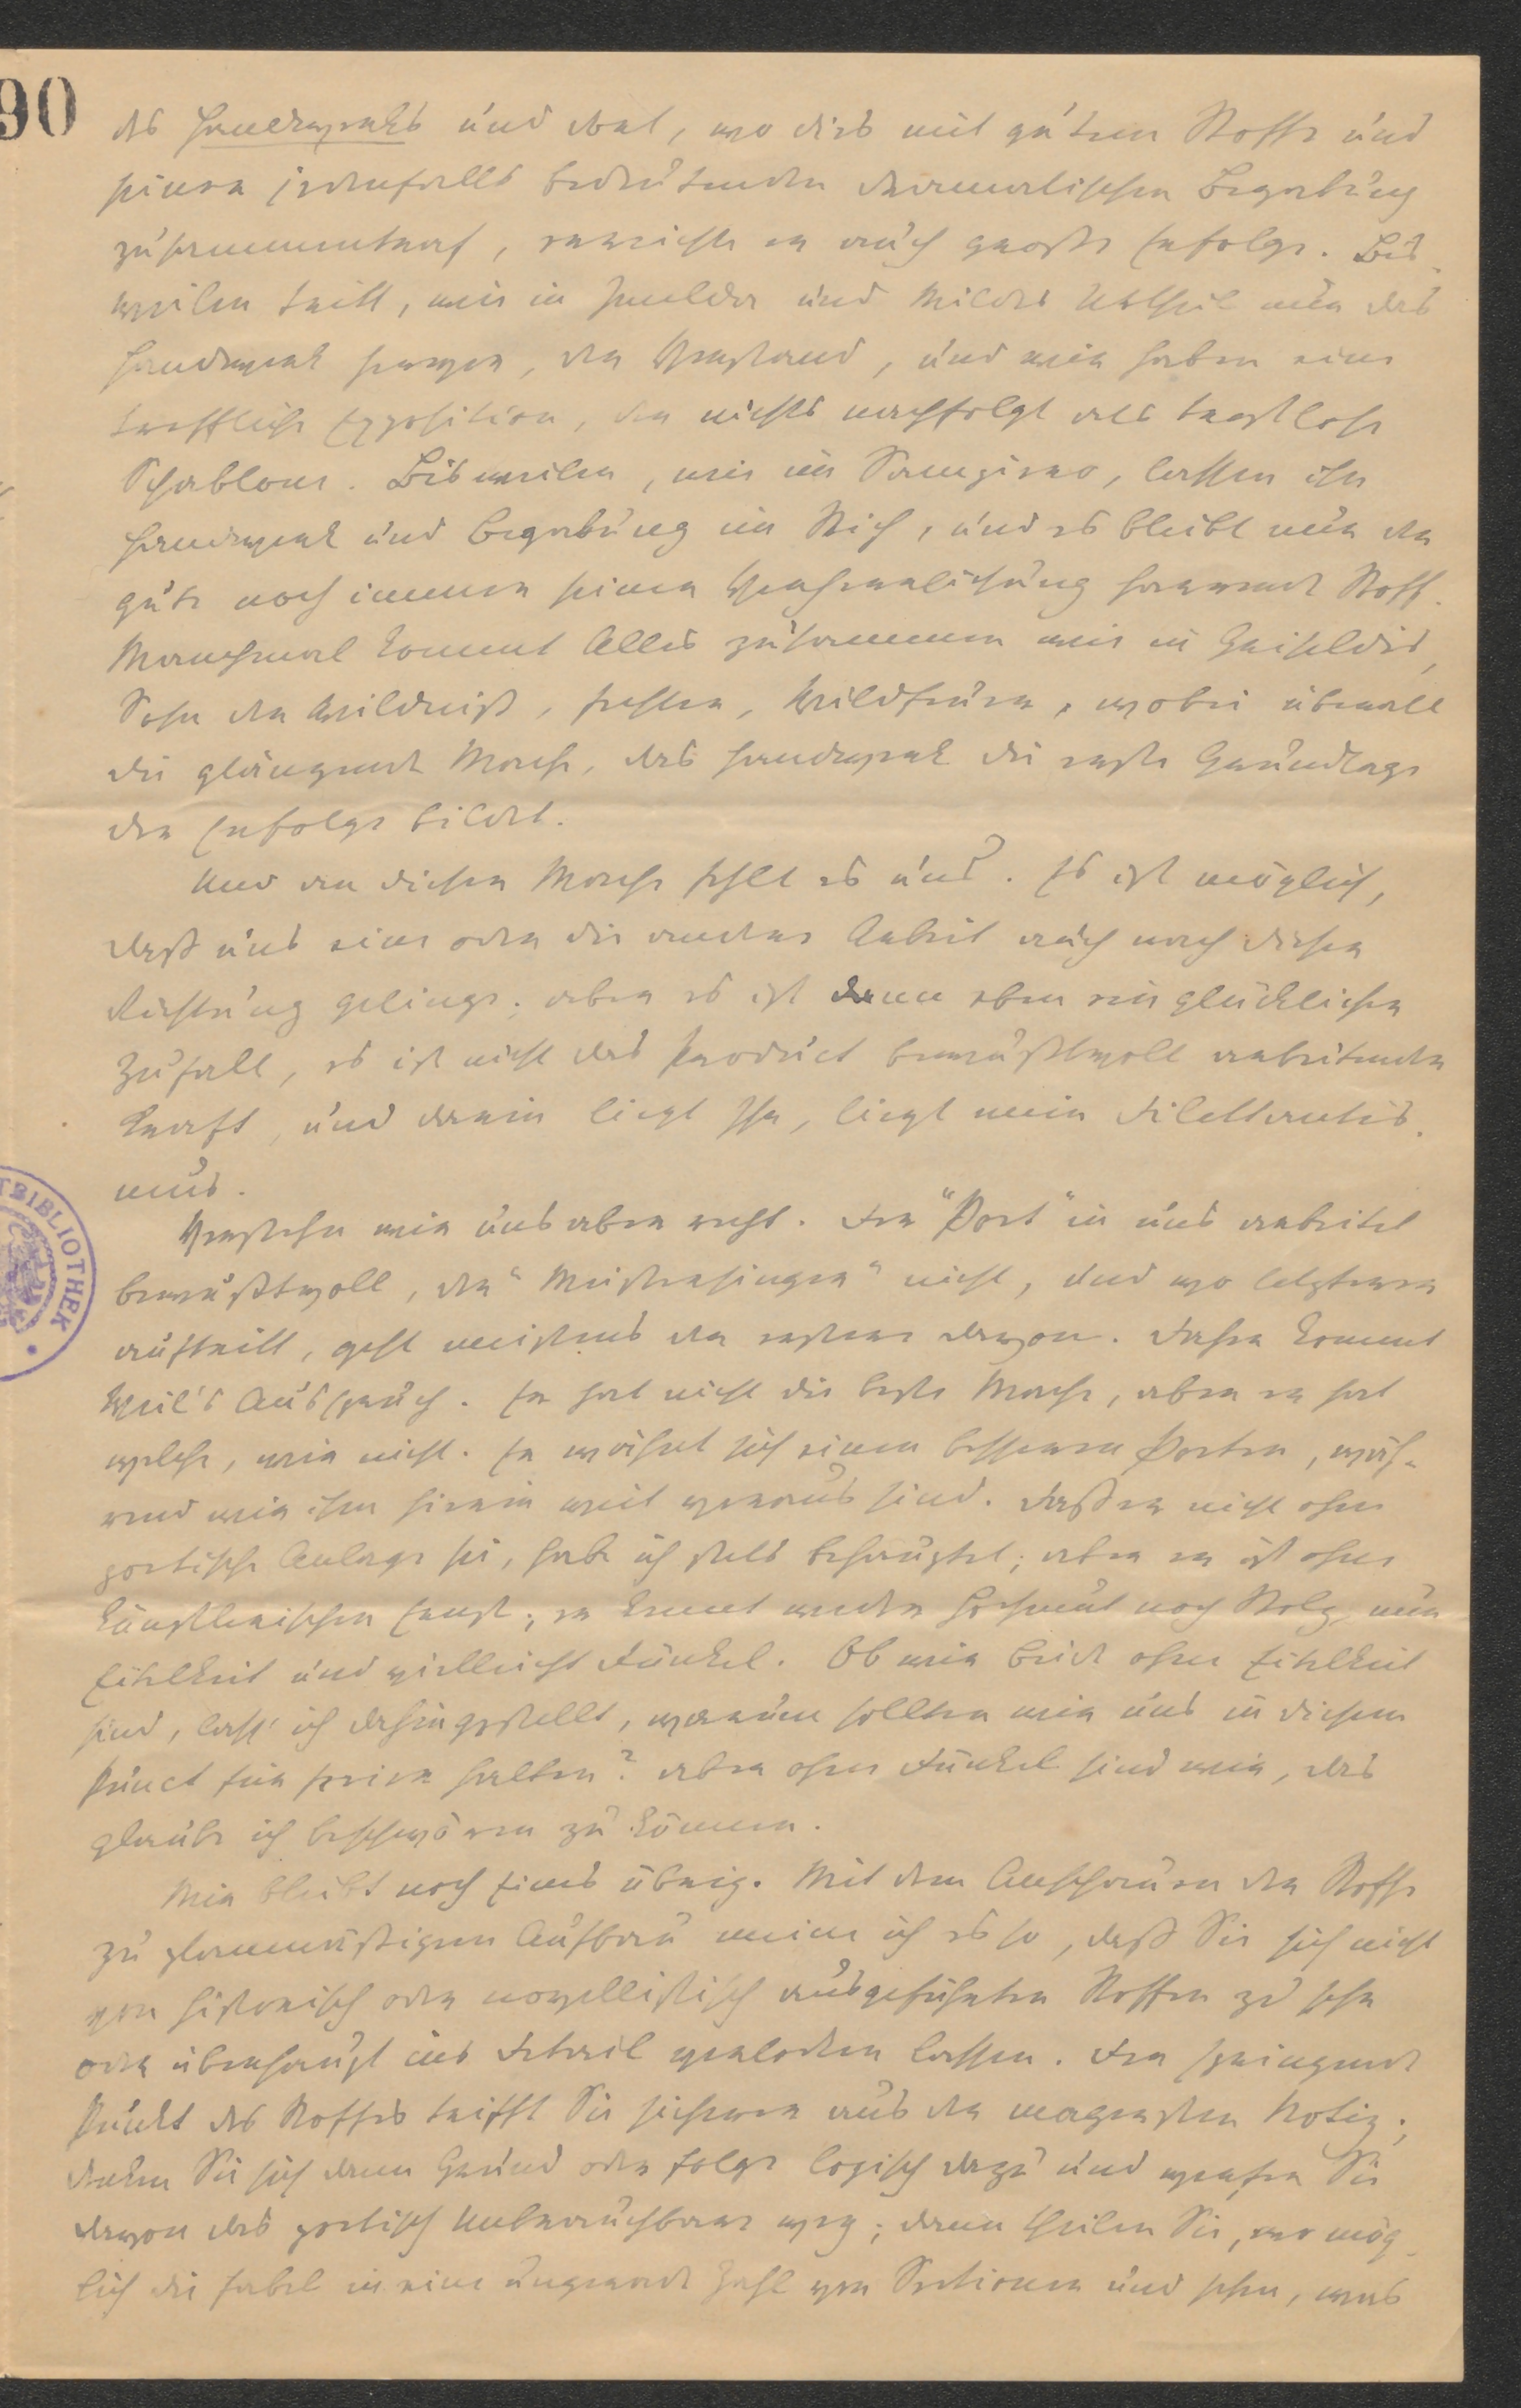 90
des Handwerks und dort, wo dies mit gutem Stoffe und
seiner jedenfalls bedeutenden dramatischen Begabung
zusammentraf, erreichte er auch große Erfolge. Bis-
weilen tritt, wie in Imelda und Mildes Urtheil nur das
Handwerk hervor, der Verstand, und wir haben eine
treffliche Exposition, der nichts nachfolgt als trostlose
Schablone. Bisweilen, wie im Sampiero, lassen ihn
Handwerk und Begabung im Stich, und es bleibt nur der
gute noch immer seiner Verherrlichung harrende Stoff.
Manchmal kommt Alles zusammen wie in Griseldis,
Sohn der Wildniß, Fechter, Wildfeuer, wobei überall
die glänzende Mache, das Handwerk die erste Grundlage
der Erfolge bildet.
Und an dieser Mache fehlt es uns. Es ist möglich,
daß uns eine oder die andere Arbeit auch nach dieser
Richtung gelinge; aber es ist dann eben ein glücklicher
Zufall, es ist nicht das Product bewußtvoll arbeitender
Kraft, und darin liegt Ihr, liegt mein Dilettantis-
mus.
Verstehn wir uns aber recht. Der "Poet" in uns arbeitet
bewußtvoll, der "Meistersinger" nicht, und wo letzterer
auftritt, geht meistens der erstere davon. Daher kommt
Weil's Ausspruch. Er hat nicht die beste Mache, aber er hat
welche, wir nicht. Er wähnt sich einen besseren Poeten, wäh-
rend wir ihm hierin weit voraus sind. Daß er nicht ohne
poetische Anlage sei, habe ich stets behauptet; aber er ist ohne
künstlerischen Ernst; er kennt weder Hochmut noch Stolz, nur
Eitelkeit und vielleicht Dünkel. Ob wir beide ohne Eitelkeit
sind, lass' ich dahingestellt, warum sollten wir uns in diesem
Punct für freier halten? aber ohne Dünkel sind wir, das
glaube ich beschwören zu können.
Mir bleibt noch Eines übrig. Mit dem Anschauen der Stoffe
zu planmäßigem Aufbau meine ich es so, daß Sie sich nicht
von historisch oder novellistisch ausgeführten Stoffen zu sehr
oder überhaupt ins Detail verlocken lassen. Der springende
Punkt des Stoffes trifft Sie sicherer aus der magersten Notiz;
denken Sie sich dann Grund oder Folge logisch dazu und werfen Sie
davon das poetisch Unbrauchbare weg; dann theilen Sie, wo mög-
lich die Fabel in eine ungerade Zahl von Sectionen und sehn, was
BIBLIOTHEK